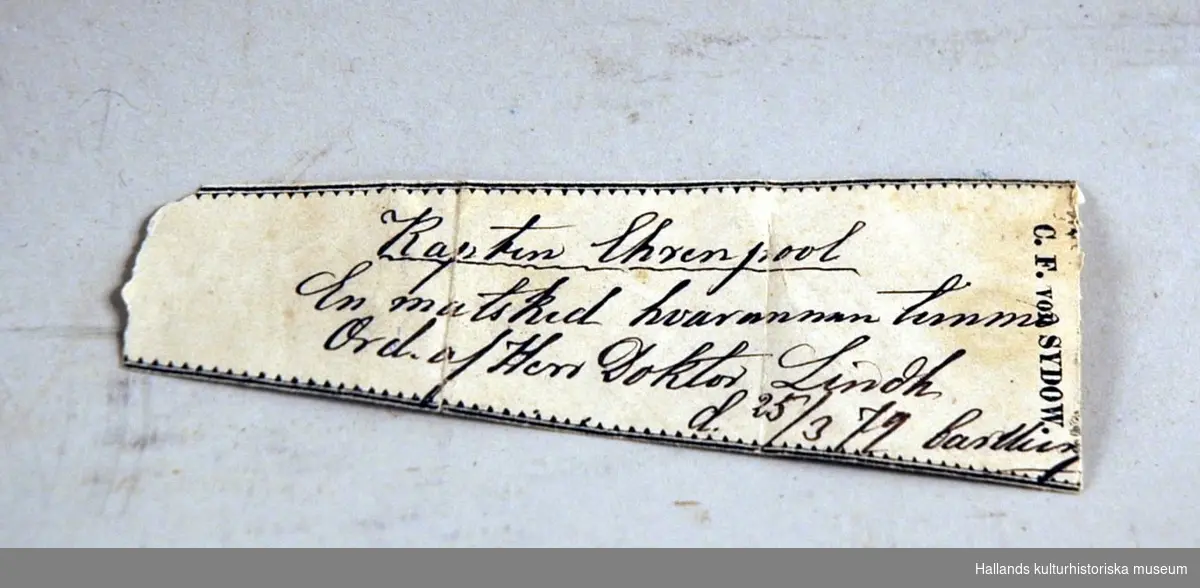 Kapten Ehrenpool
En matsked hvarannan timma
Ord. af Herr Doktor Lindh
d. 25/3 79
C. F. von SYDOW.
Hallands kulturhistoriska museum